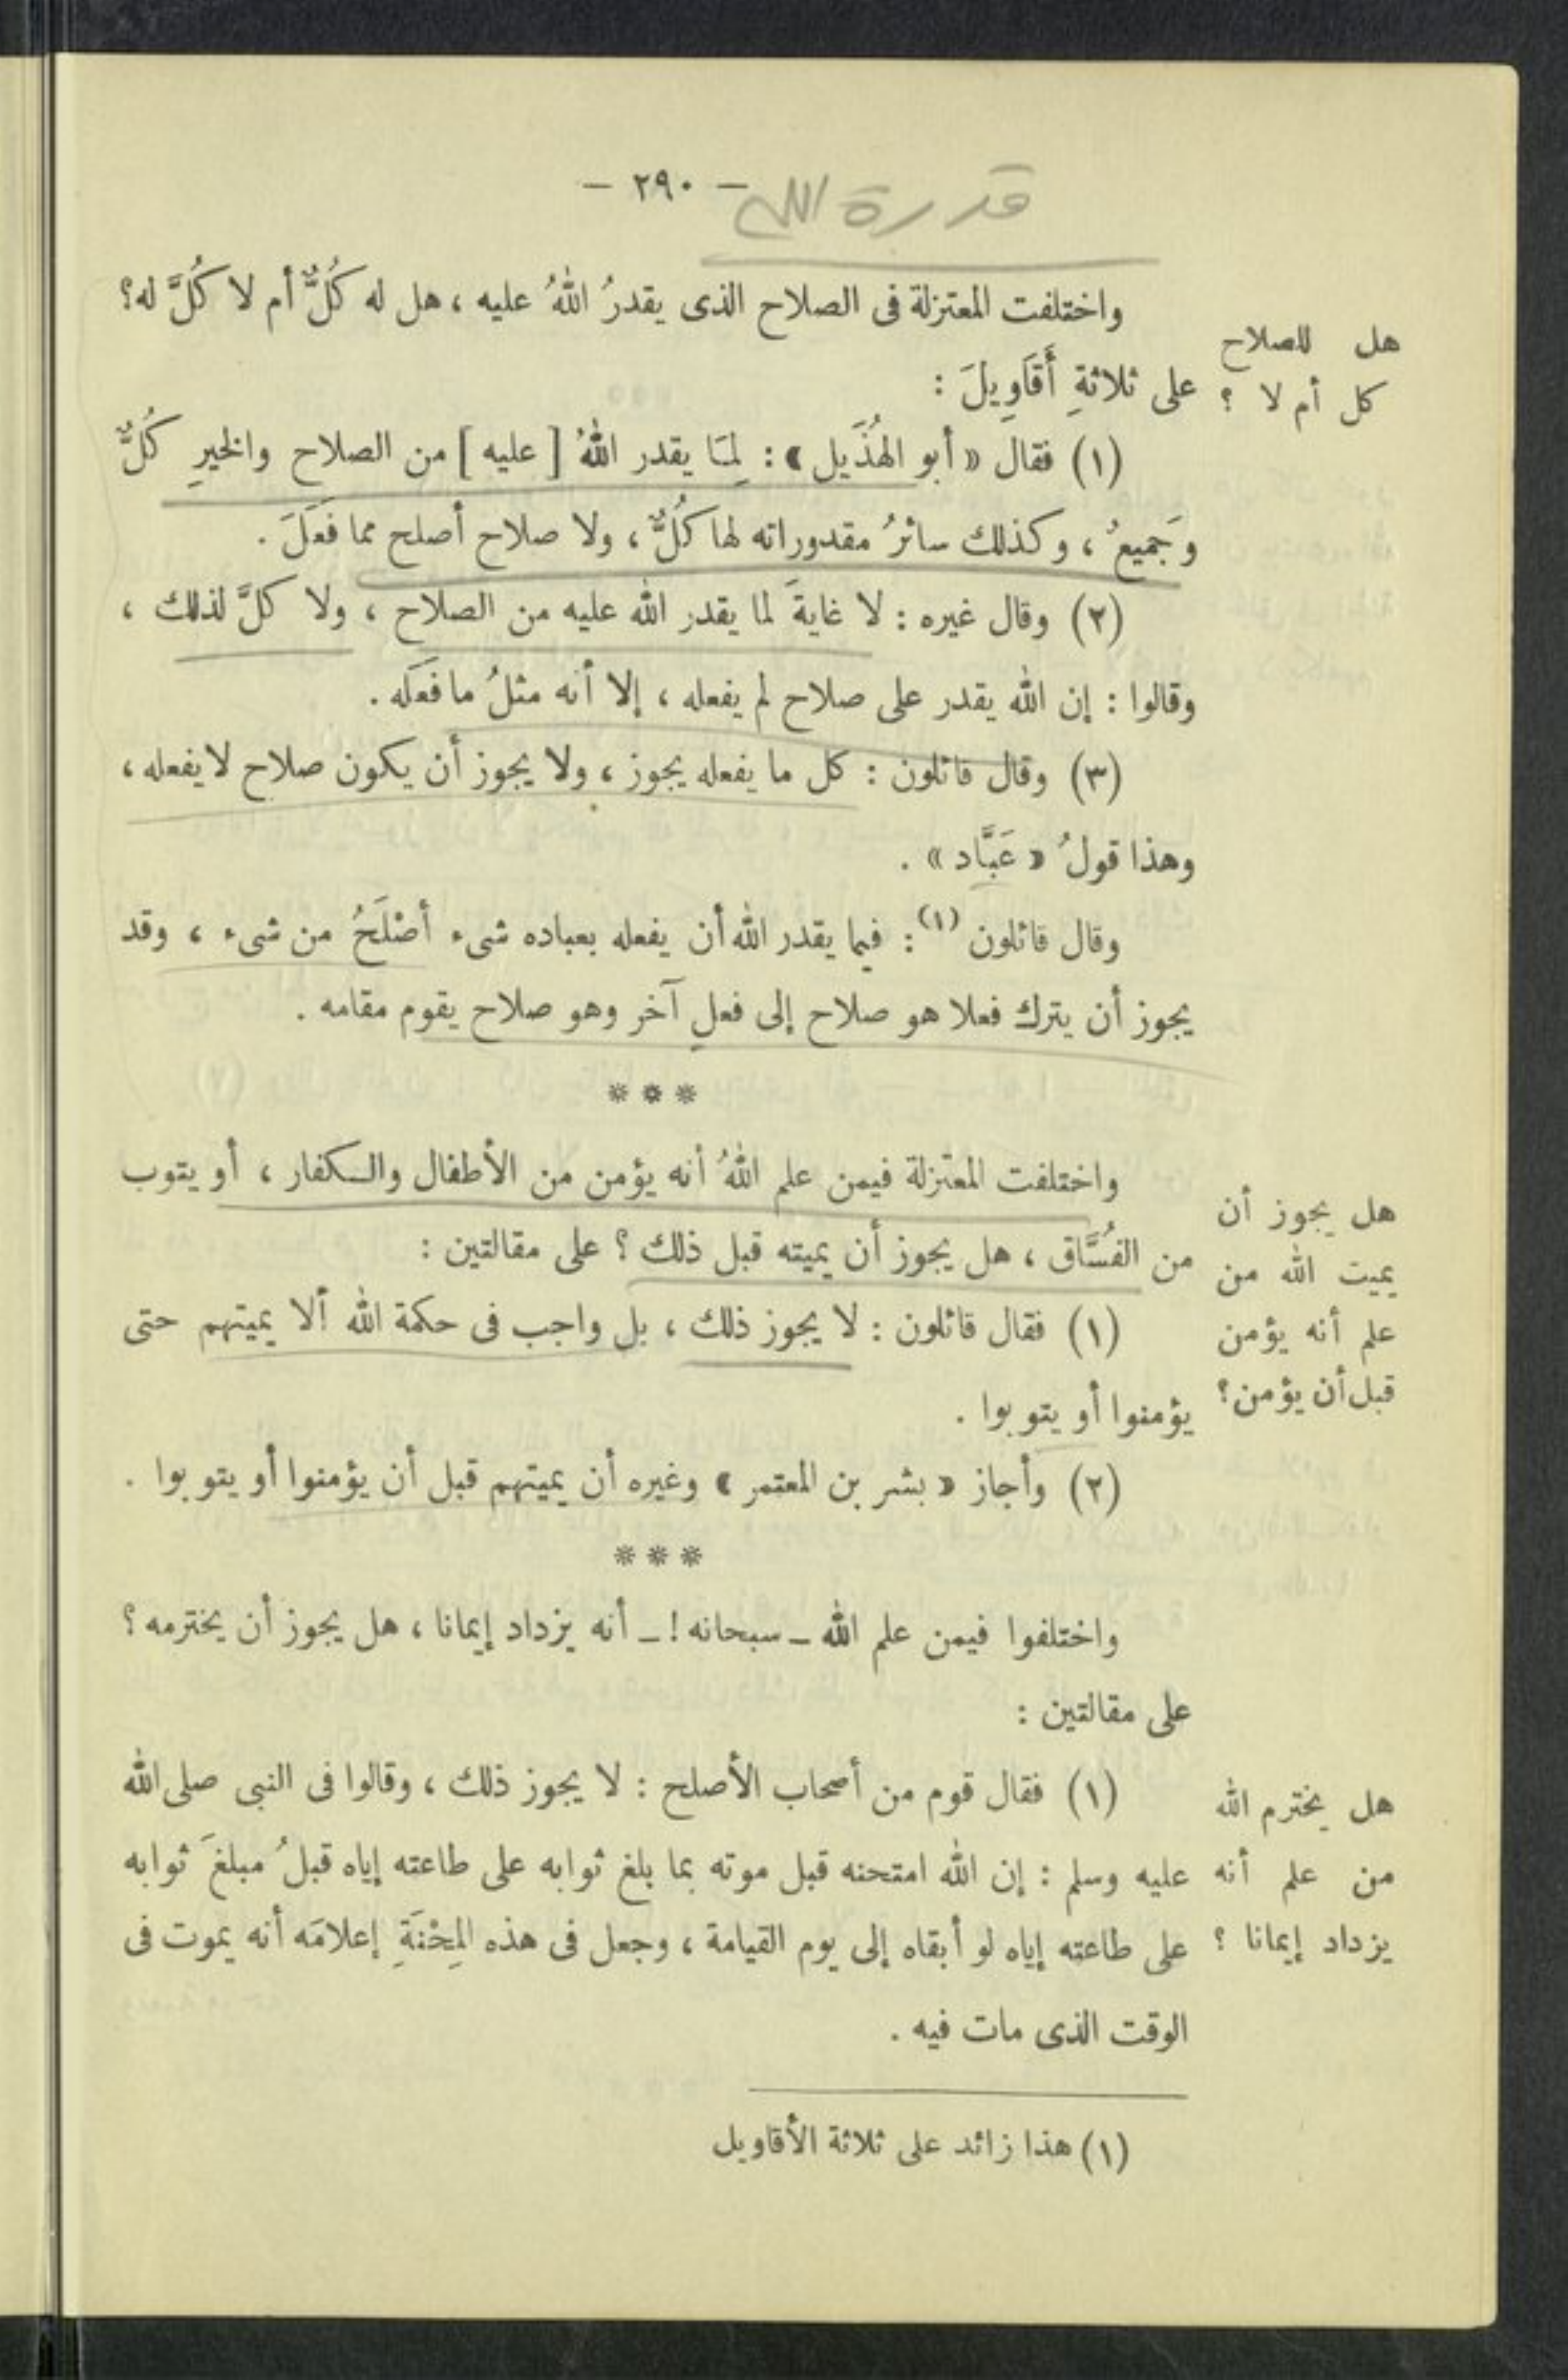 — ٢٩٠ —
قدرة الله
واختلفت المعتزلة فى الصلاح الذى يقدرُ اللهُ عليه ، هل له كُلٌّ أم لا كُلَّ له؟
هل للصلاح
كل أم لا ؟
على ثلاثةِ أَقَاوِيلَ :
(١) فقال « أبو الهُذَيل » : لِمَا يقدر اللهُ [ عليه ] من الصلاح والخيرِ كُلٌّ
وَجَمِيعٌ ، وكذلك سائرُ مقدوراته لها كُلٌّ ، ولا صلاح أصلح مما فَعَلَ .
(٢) وقال غيره : لا غايةَ لما يقدر الله عليه من الصلاح ، ولا كلَّ لذلك ،
وقالوا : إن الله يقدر على صلاح لم يفعله ، إلا أنه مثلُ ما فَعَلَه .
(٣) وقال قائلون : كل ما يفعله يجوز ، ولا يجوز أن يكون صلاح لا يفعله ،
وهذا قولُ « عَبَّاد » .
وقال قائلون (١) : فيما يقدر الله أن يفعله بعباده شىء أَصْلَحُ من شىء ، وقد
يجوز أن يترك فعلا هو صلاح إلى فعلٍ آخر وهو صلاح يقوم مقامه .
* * *
واختلفت المعتزلة فيمن علم اللهُ أنه يؤمن من الأطفال والكفار ، أو يتوب
هل يجوز أن
يميت الله من
علم أنه يؤمن
قبل أن يؤمن؟
من الفُسَّاق ، هل يجوز أن يميته قبل ذلك ؟ على مقالتين :
(١) فقال قائلون : لا يجوز ذلك ، بل واجب فى حكمة الله ألا يميتهم حتى
يؤمنوا أو يتوبوا .
(٢) وأجاز « بشر بن المعتمر » وغيره أن يميتهم قبل أن يؤمنوا أو يتوبوا .
* * *
واختلفوا فيمن علم الله ـ سبحانه ! ـ أنه يزداد إيمانا ، هل يجوز أن يخترمه ؟
على مقالتين :
هل يخترم الله
من علم أنه
يزداد إيمانا ؟
(١) فقال قوم من أصحاب الأصلح : لا يجوز ذلك ، وقالوا فى النبى صلى الله
عليه وسلم : إن الله امتحنه قبل موته بما بلغ ثوابه على طاعته إياه قبلُ مبلغَ ثوابه
على طاعته إياه لو أبقاه إلى يوم القيامة ، وجعل فى هذه المِحْنَةِ إعلامَه أنه يموت فى
الوقت الذى مات فيه .
(١) هذا زائد على ثلاثة الأقاويل